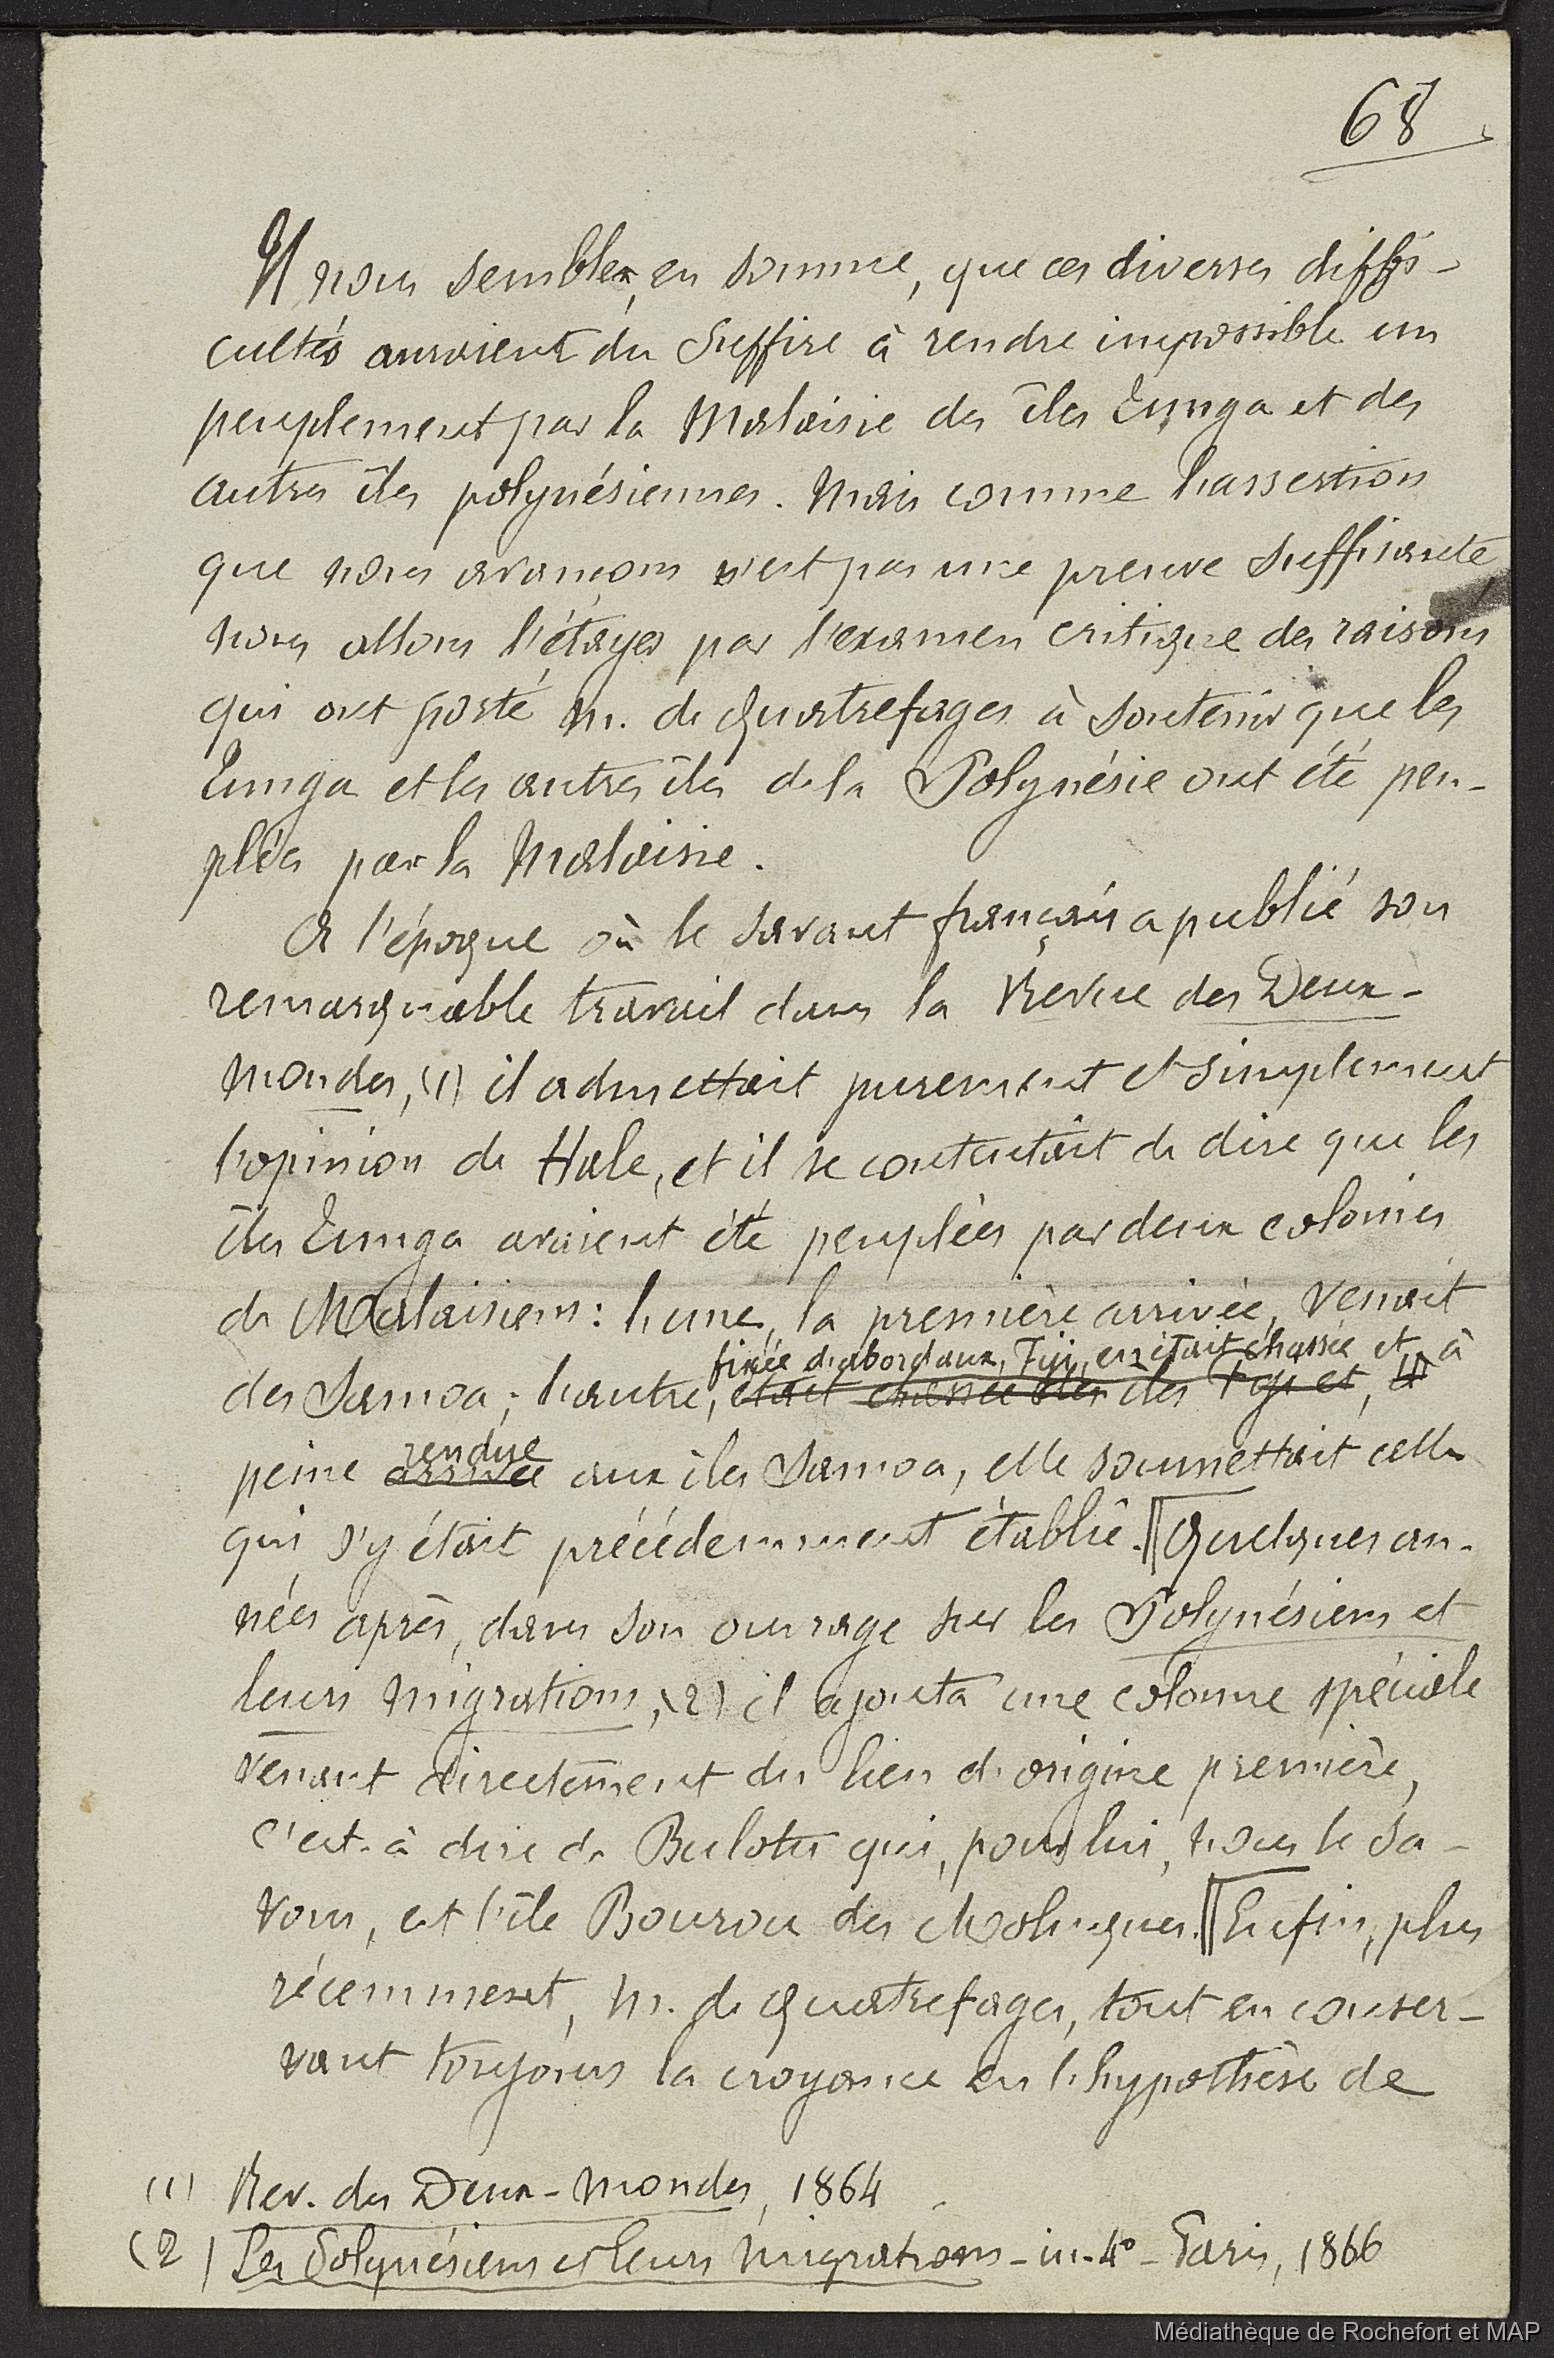 68
Il nous semble, en somme, que ces diverses diffi-
cultés auraient du suffire à rendre impossible un
peuplement par la Malaisie des îles Tunga et des
autres îles polynésiennes. Mais comme l'assertion
que nous avançons n'est pas une preuve suffisante,
nous allons l'étayer par l'examen critique des raisons
qui ont porté M. de Quatrefages à soutenir que les
Tunga et les autres îles de la Polynésie ont été peu-
plées par la Malaisie.
A l'époque où le savant français a publié son
remarquable travail dans la Revue des Deux-
Mondes, (1) il admettait purement et simplement
l'opinion de Hale, et il se contentait de dire que les
îles Tunga avaient été peuplées par deux colonies
de Malaisiens : l'une, la première arrivée, venait
fixée d'abord aux Fiji, en était chassée et, à
des Samoa ; l'autre, était chassée des îles Fiji et, à
rendue
peine arrivée aux îles Samoa, elle soumettait celle
qui s'y était précédemment établie. || Quelques an-
nées après, dans son ouvrage sur les Polynésiens et
leurs migrations, (2) il ajouta une colonne spéciale
venant directement du lieu d'origine première,
c'est-à dire de Bulotu qui, pour lui, nous le sa-
vons, est l'île Bourou des Moluques. || Enfin, plus
récemment, M. de Quatrefages, tout en conser-
vant toujours la croyance en l'hypothèse de
(1) Rev. des Deux-Mondes, 1864
(2) Les Polynésiens et leurs migrations - in-4° - Paris, 1866
Médiathèque de Rochefort et MAP